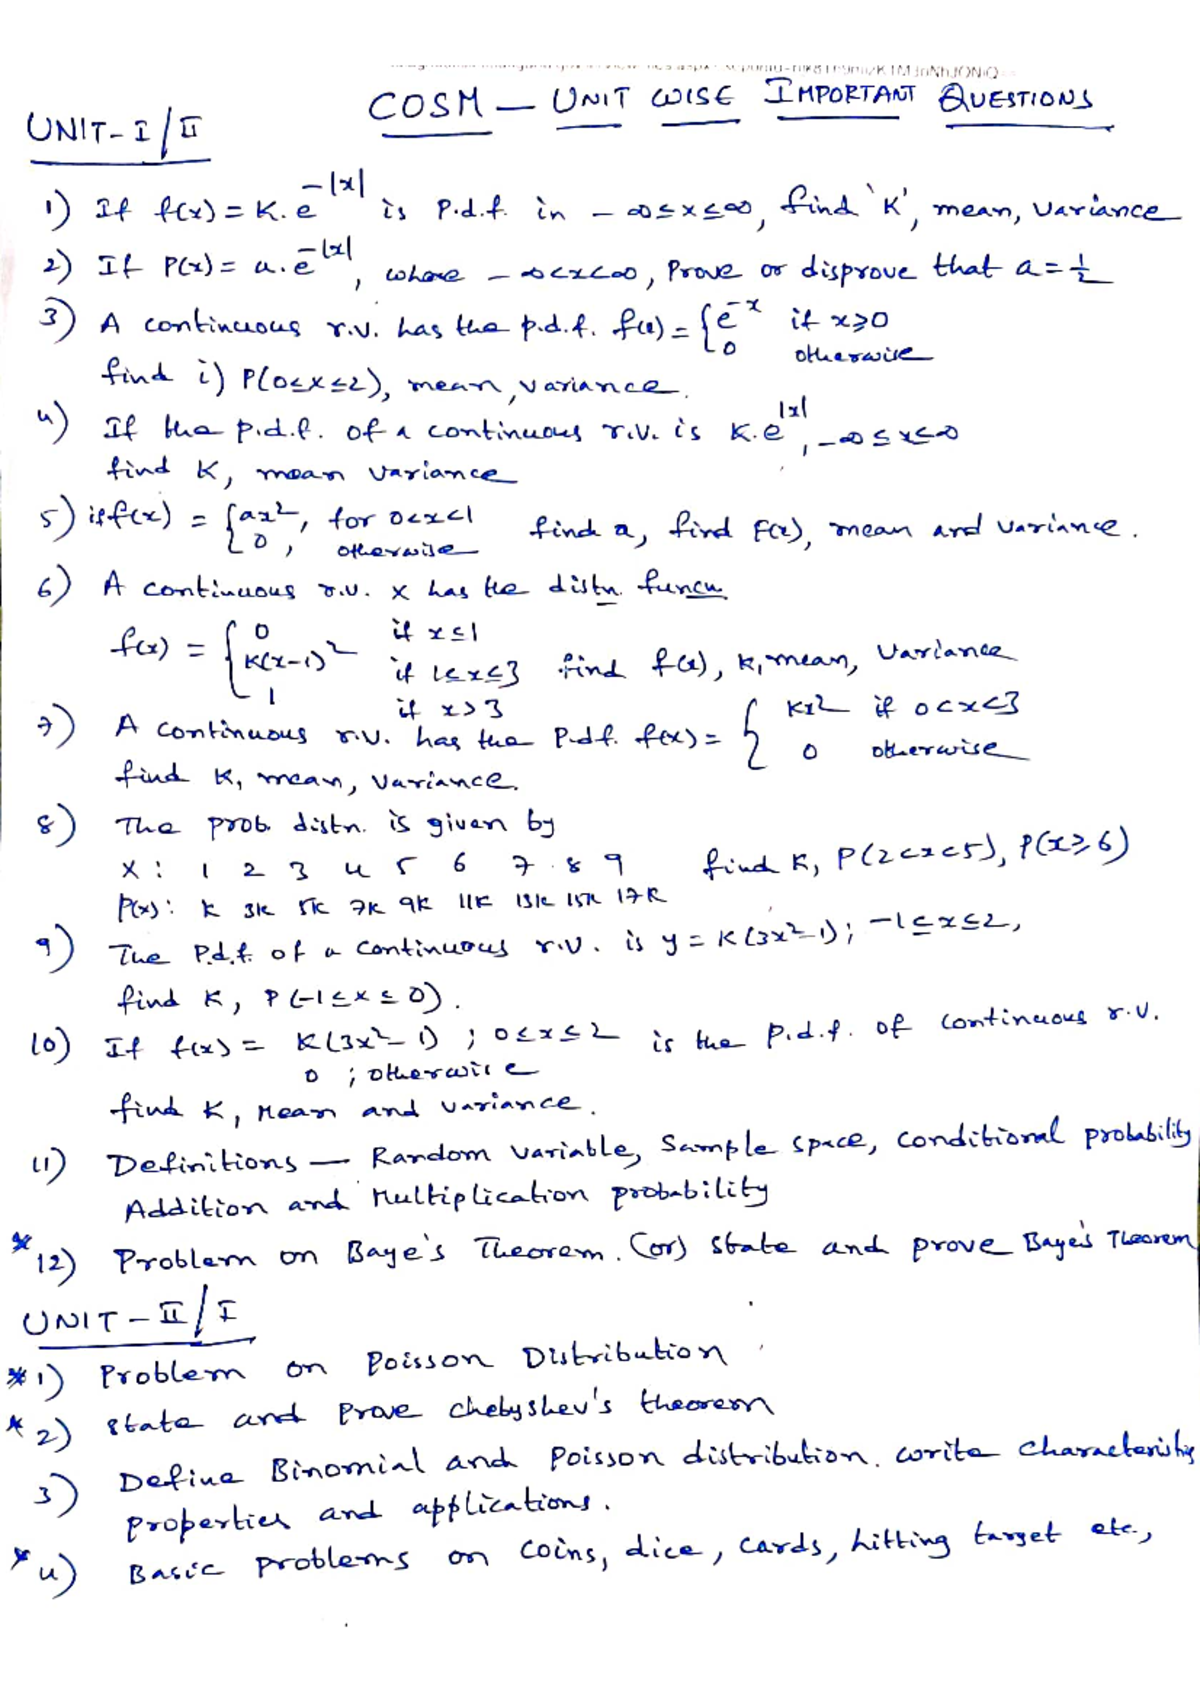 COSM — UNIT WISE IMPORTANT QUESTIONS
UNIT-I/II
1) If f(x) = K.e^-|x| is P.d.f. in -∞≤x≤∞, find 'K', mean, variance
2) If P(x) = a.e^-|x|, where -∞<x<∞, Prove or disprove that a = 1/2
3) A continuous r.v. has the p.d.f. f(x) = { e^-x if x≥0
0 otherwise
find i) P(0≤x≤2), mean, variance.
4) If the p.d.f. of a continuous r.v. is K.e^|x|, -∞≤x≤∞
find K, mean variance
5) if f(x) = { ax², for 0<x<1 find a, find F(x), mean and variance.
0, otherwise
6) A continuous r.v. x has the distn. funcn.
f(x) = { 0 if x≤1
K(x-1)² if 1≤x≤3 find f(x), K, mean, variance
1 if x>3
7) A continuous r.v. has the P.d.f. f(x) = { Kx² if 0<x<3
0 otherwise
find K, mean, variance.
8) The prob. distn. is given by
X: 1 2 3 4 5 6 7 8 9 find K, P(2<x<5), P(x≥6)
P(x): K 3K 5K 7K 9K 11K 13K 15K 17K
9) The P.d.f. of a continuous r.v. is y = K(3x²-1); -1≤x≤2,
find K, P(-1≤x≤0).
10) If f(x) = K(3x²-1) ; 0≤x≤2 is the P.d.f. of continuous r.v.
0 ; otherwise
find K, Mean and variance.
11) Definitions — Random variable, Sample space, conditional probability
Addition and Multiplication probability
* 12) Problem on Baye's Theorem. (or) State and prove Baye's Theorem
UNIT-II/I
* 1) Problem on Poisson Distribution
* 2) State and Prove chebyshev's theorem
3) Define Binomial and Poisson distribution. write characteristics
properties and applications.
* 4) Basic problems on coins, dice, cards, hitting target etc.,